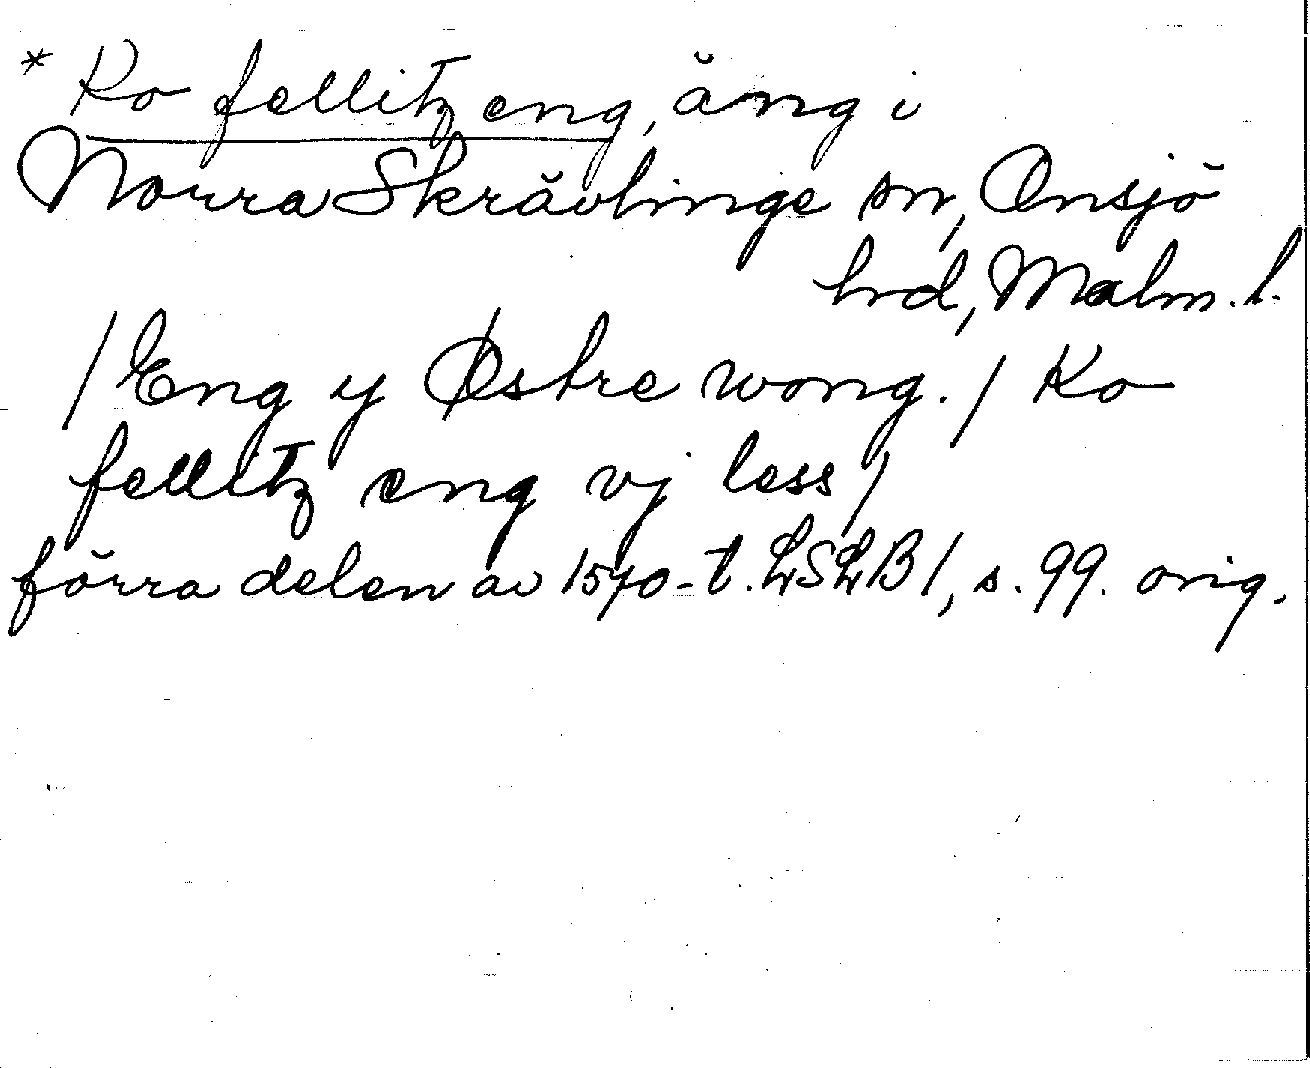 * Ko fellitz eng, äng i
Norra Skrävlinge sn, Onsjö
hrd, Malm. l.
/ Eng y Østre wong. / Ko
fellitz eng vj less /
förra delen av 1570-t. LSLB 1, s. 99. orig.